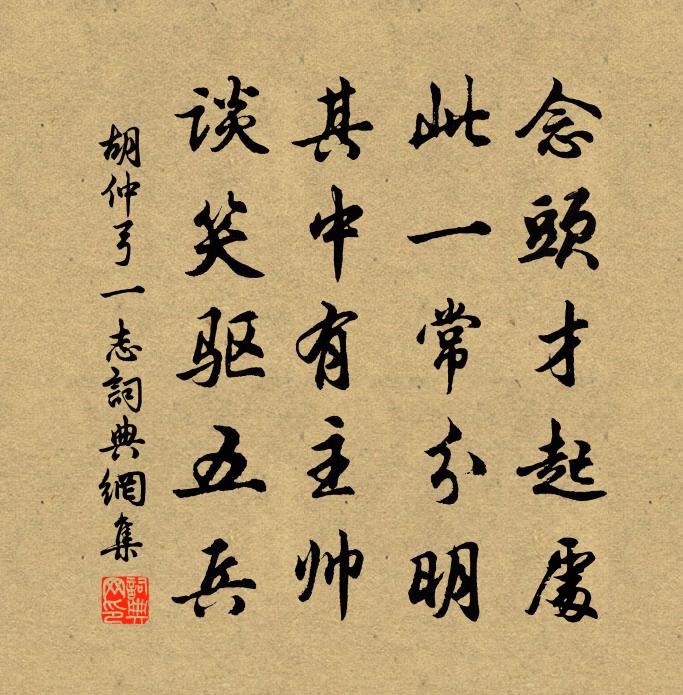 念頭才起處
此一常分明
其中有主帅
谈笑驱五兵
胡仲弓一志詞典網集
詞典網印